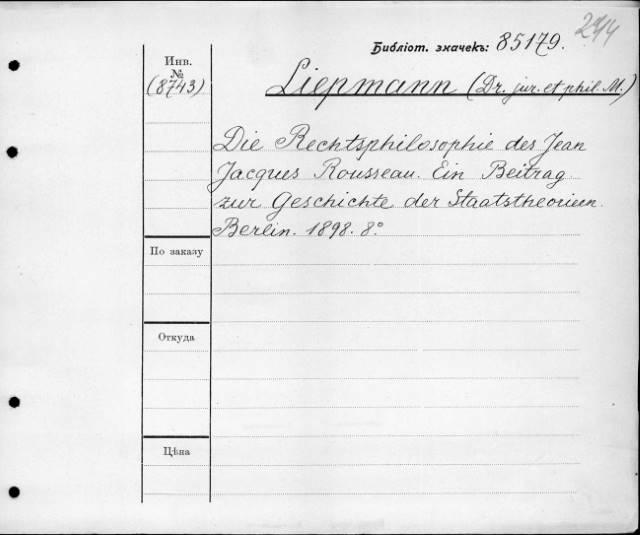 2944
Библіот. значекъ: 85179.
Инв.
№
(8743)
Liepmann (Dr. jur. et phil. M.)
Die Rechtsphilosophie des Jean
Jacques Rousseau. Ein Beitrag
zur Geschichte der Staatstheorieen.
Berlin. 1898. 8°
По заказу
Откуда
Цѣна